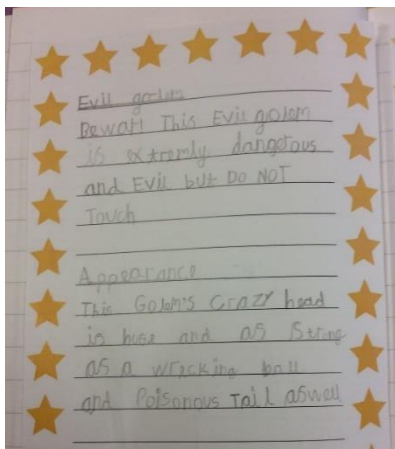 Evil golem
Bewar! This Evil golem
is extremly dangerous
and Evil but Do NOT
Touch
Appearance
This Golem's Crazy head
is huge and as Strong
as a wrecking ball
and Poisonous Tail aswell